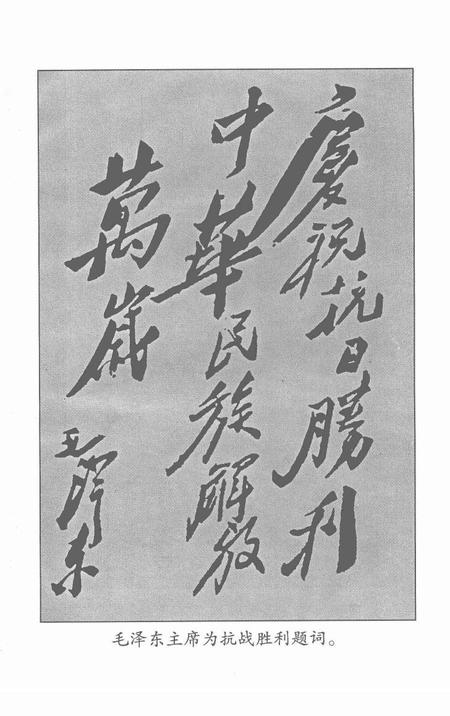 慶祝抗日勝利
中華民族解放
萬歲
毛澤东
毛泽东主席为抗战胜利题词。